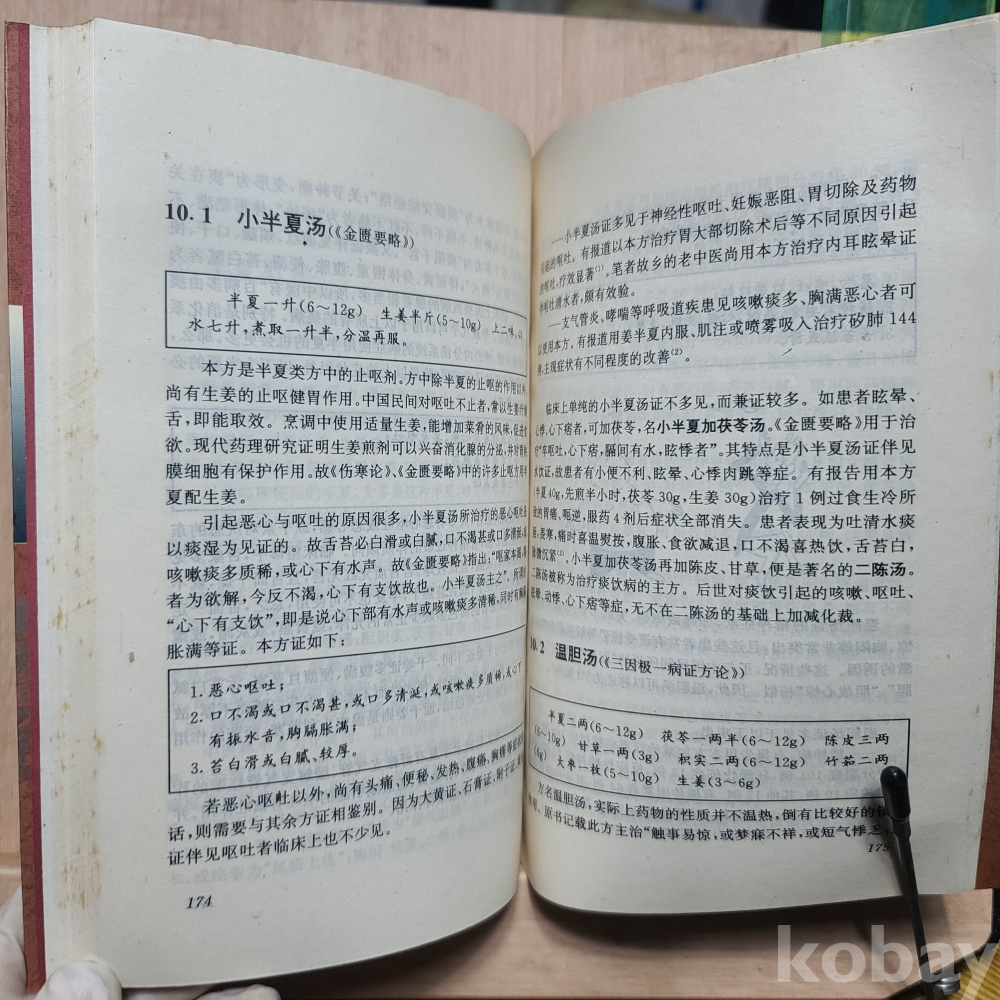 10.1 小半夏汤(《金匮要略》)
半夏一升(6～12g) 生姜半斤(5～10g) 上二味,以
水七升,煮取一升半,分温再服。
本方是半夏类方中的止呕剂。方中除半夏的止呕的作用以外,
尚有生姜的止呕健胃作用。中国民间对呕吐不止者,常以生姜
舌,即能取效。烹调中使用适量生姜,能增加菜肴的风味,促进食
欲。现代药理研究证明生姜煎剂可以兴奋消化腺的分泌,并对胃粘
膜细胞有保护作用。故《伤寒论》、《金匮要略》中的许多止呕方用半
夏配生姜。
引起恶心与呕吐的原因很多,小半夏汤所治疗的恶心呕吐是
以痰湿为见证的。故舌苔必白滑或白腻,口不渴甚或口多清涎,或
咳嗽痰多质稀,或心下有水声。故《金匮要略》指出:“呕家本渴,
者为欲解,今反不渴,心下有支饮故也。小半夏汤主之”,所谓
“心下有支饮”,即是说心下部有水声或咳嗽痰多清稀,同时有胸膈
胀满等证。本方证如下:
1. 恶心呕吐;
2. 口不渴或口不渴甚,或口多清涎,或咳嗽痰多质稀,或心下
有振水音,胸膈胀满;
3. 苔白滑或白腻、较厚。
若恶心呕吐以外,尚有头痛、便秘、发热、腹痛、胸痛等症状
话,则需要与其余方证相鉴别。因为大黄证、石膏证、附子证、
证伴见呕吐者临床上也不少见。
174
——小半夏汤证多见于神经性呕吐、妊娠恶阻、胃切除及药物
引起的呕吐。有报道以本方治疗胃大部切除术后等不同原因引起
的呕吐,疗效显著⁽¹⁾。笔者故乡的老中医尚用本方治疗内耳眩晕证
伴呕吐清水者,颇有效验。
——支气管炎、哮喘等呼吸道疾患见咳嗽痰多、胸满恶心者可
以使用本方。有报道用姜半夏内服、肌注或喷雾吸入治疗矽肺 144
例,主观症状有不同程度的改善⁽²⁾。
临床上单纯的小半夏汤证不多见,而兼证较多。如患者眩晕、
心悸、心下痞者,可加茯苓,名小半夏加茯苓汤。《金匮要略》用于治
疗“卒呕吐,心下痞,膈间有水,眩悸者”。其特点是小半夏汤证伴见
水饮证,故患者有小便不利、眩晕、心悸肉跳等症。有报告用本方
(半夏 40g,先煎半小时,茯苓 30g,生姜 30g)治疗 1 例过食生冷所
致的胃痛、呃逆,服药 4 剂后症状全部消失。患者表现为吐清水痰
涎、畏寒,痛时喜温熨按,腹胀、食欲减退,口不渴喜热饮,舌苔白,
脉微沉紧⁽³⁾。小半夏加茯苓汤再加陈皮、甘草,便是著名的二陈汤。
二陈汤被称为治疗痰饮病的主方。后世对痰饮引起的咳嗽、呕吐、
眩晕、动悸、心下痞等症,无不在二陈汤的基础上加减化裁。
10.2 温胆汤(《三因极一病证方论》)
半夏二两(6～12g) 茯苓一两半(6～12g) 陈皮三两
(6～10g) 甘草一两(3g) 枳实二两(6～12g) 竹茹二两
(6g) 大枣一枚(5～10g) 生姜(3～6g)
方名温胆汤,实际上药物的性质并不温热,倒有比较好的
作用。原书记载此方主治“触事易惊,或梦寐不祥,或短气悸乏,
175
kobay